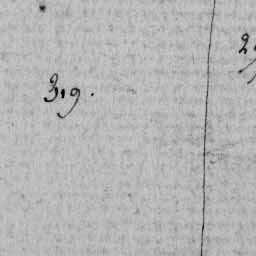 3.9.
2